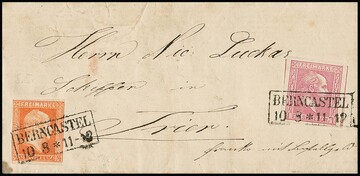 Herrn Nic. Luckas
Schiffer in
Trier.
franco mit
FREIMARKE
BERNCASTEL
10 8 * 11-12
BERNCASTEL
10 8 * 11-12